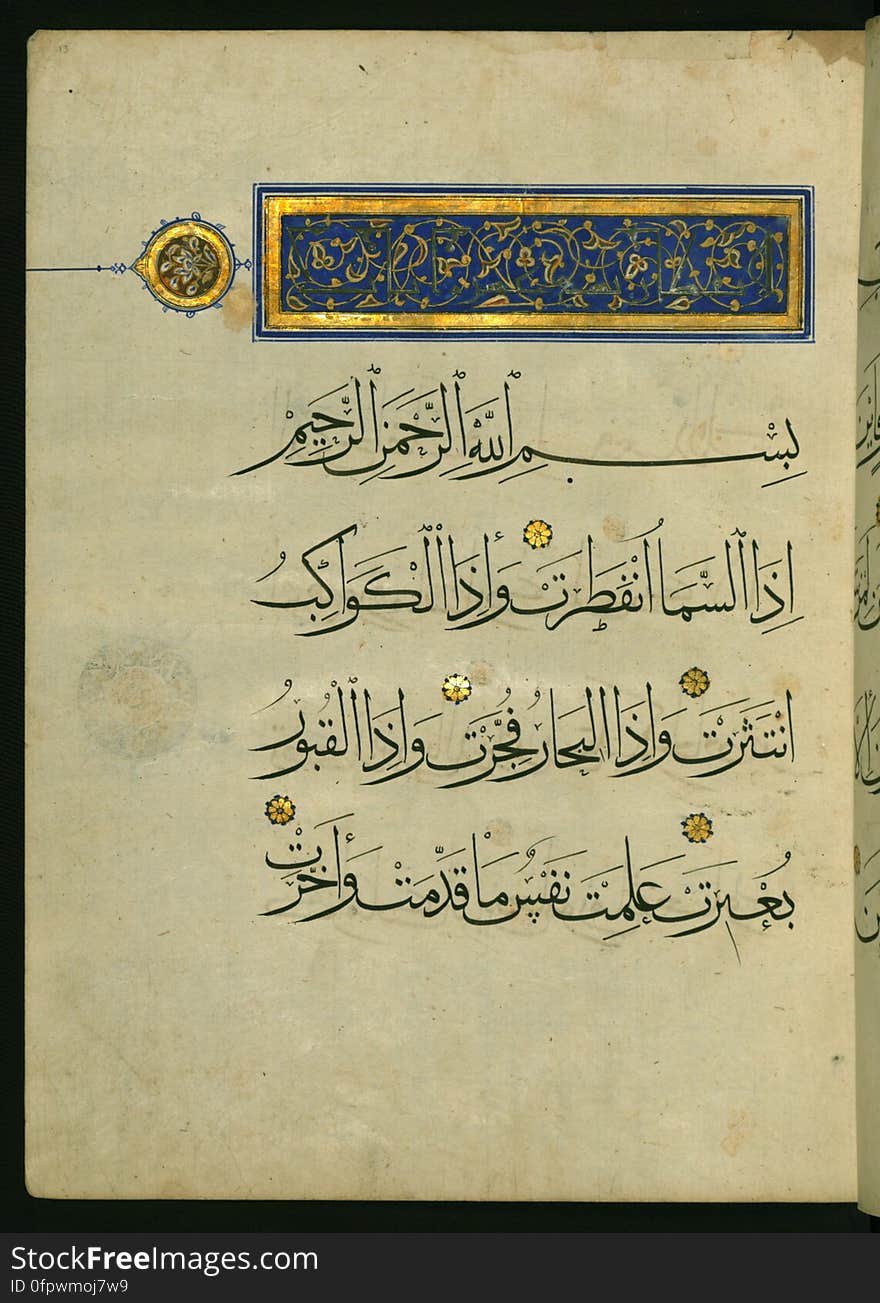 13
بِسْمِ ٱللَّهِ ٱلرَّحْمَنِ ٱلرَّحِيمِ
اِذَا ٱلسَّمَا اُنْفَطَرَتْ وَأِذَا ٱلْكَوَاكِبُ
انْتَثَرَتْ وَاِذَا البِحَارُ فُجِّرَتْ وَاِذَا ٱلْقُبُورُ
بُعْثِرَتْ عَلِمَتْ نَفْسٌ مَا قَدَّمَتْ وَأَخَّرَتْ
StockFreeImages.com
ID 0fpwmoj7w9